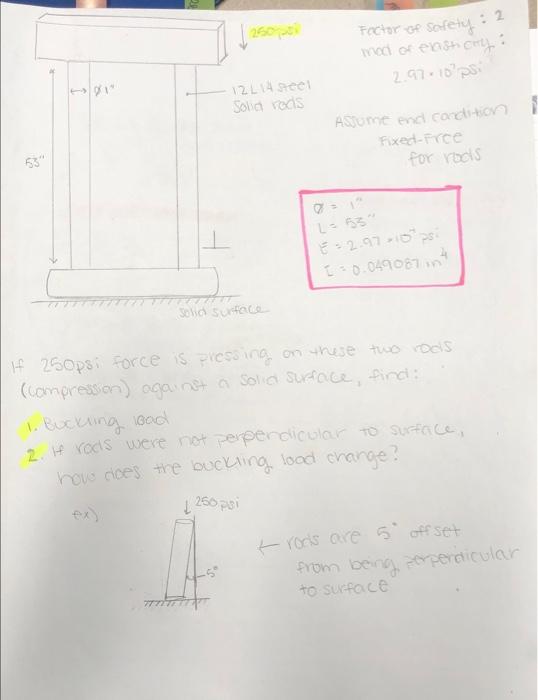 250psi
Factor of safety: 2
mod of elasticity:
2.97 × 10⁷ psi
Ø1"
12L14 steel
Solid rods
Assume end condition
Fixed-Free
for rods
53"
Ø = 1"
L = 53"
E = 2.97 × 10⁷ psi
I = 0.049087 in⁴
solid surface
If 250psi force is pressing on these two rods
(compression) against a solid surface, find:
1. Buckling load
2. If rods were not perpendicular to surface,
how does the buckling load change?
ex)
250 psi
5°
← rods are 5° offset
from being perpendicular
to surface